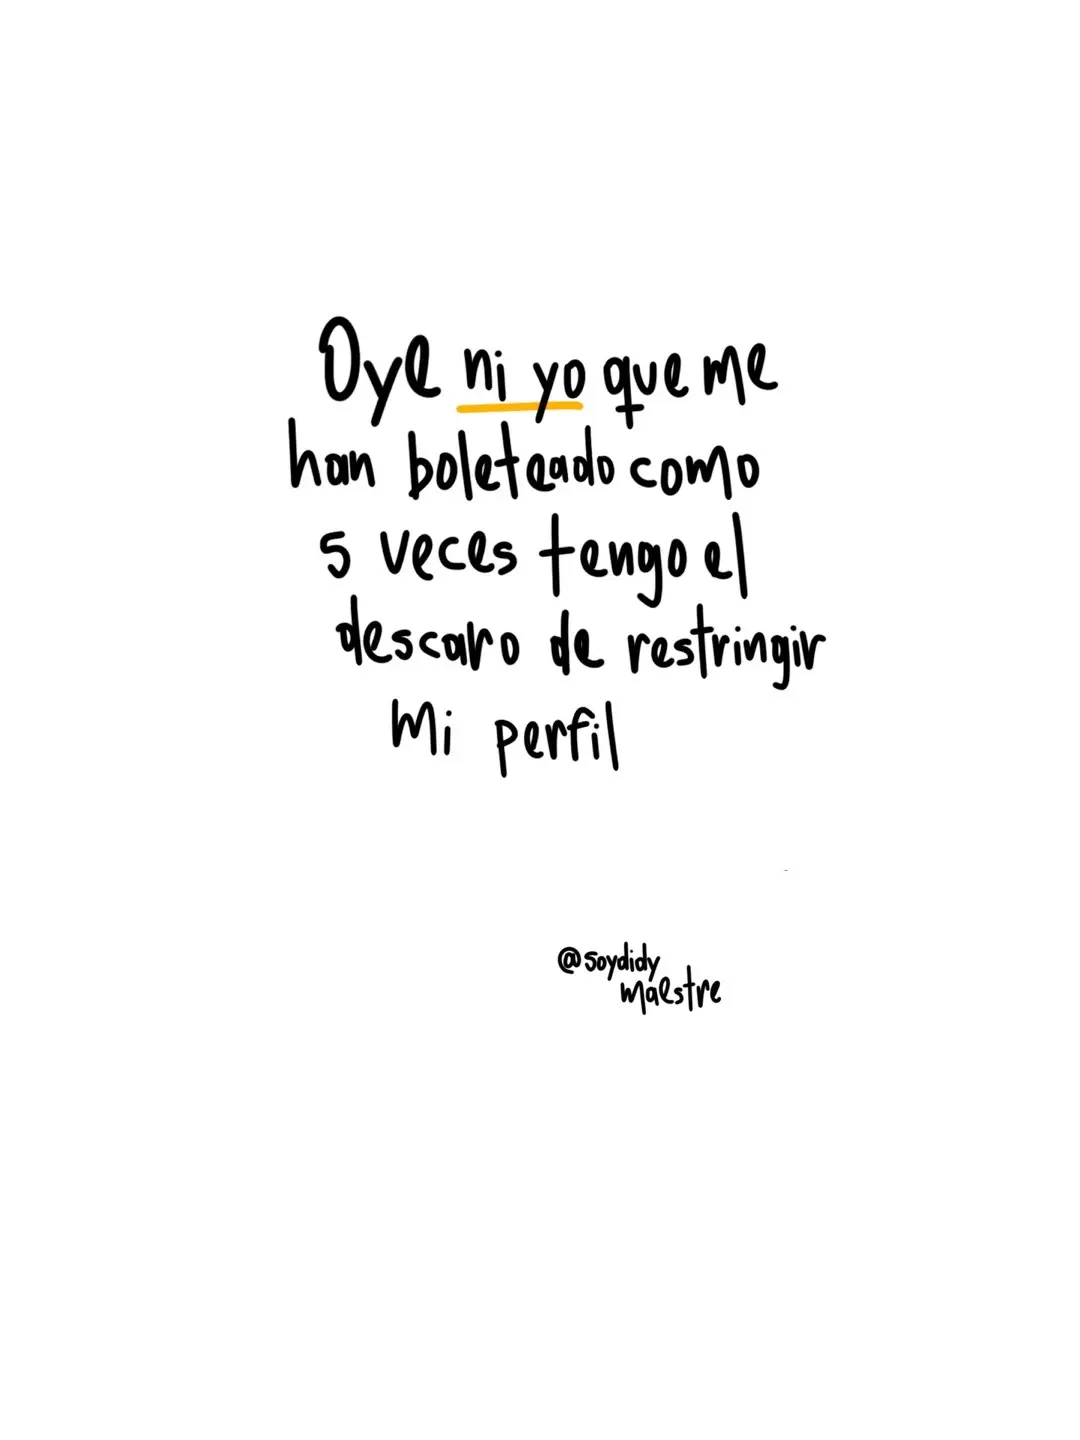 Oye ni yo que me
han boleteado como
5 veces tengo el
descaro de restringir
Mi perfil
@soydidy
maestre